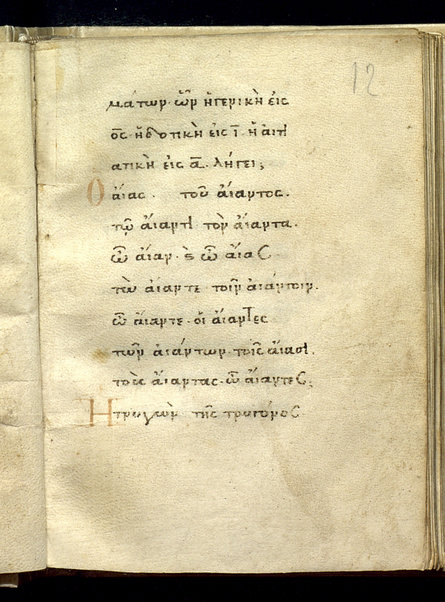 12
μάτων· ὧν ἡ γενικὴ εἰς
ος· ἡ δοτικὴ εἰς ϊ· ἡ αἰτι
ατικὴ εἰς α· λήγει;
Ὁ αἴας· τοῦ αἴαντος·
τῷ αἴαντι· τὸν αἴαντα·
ὦ αἶαν· ϗ ὦ αἶας
τὼ αἴαντε· τοῖν αἰάντοιν·
ὦ αἴαντε· οἱ αἴαντες
τῶν αἰάντων· τοῖς αἴασι·
τοὺς αἴαντας· ὦ αἴαντες;
Ἡ τρυγὼν τῆς τρυγόνος